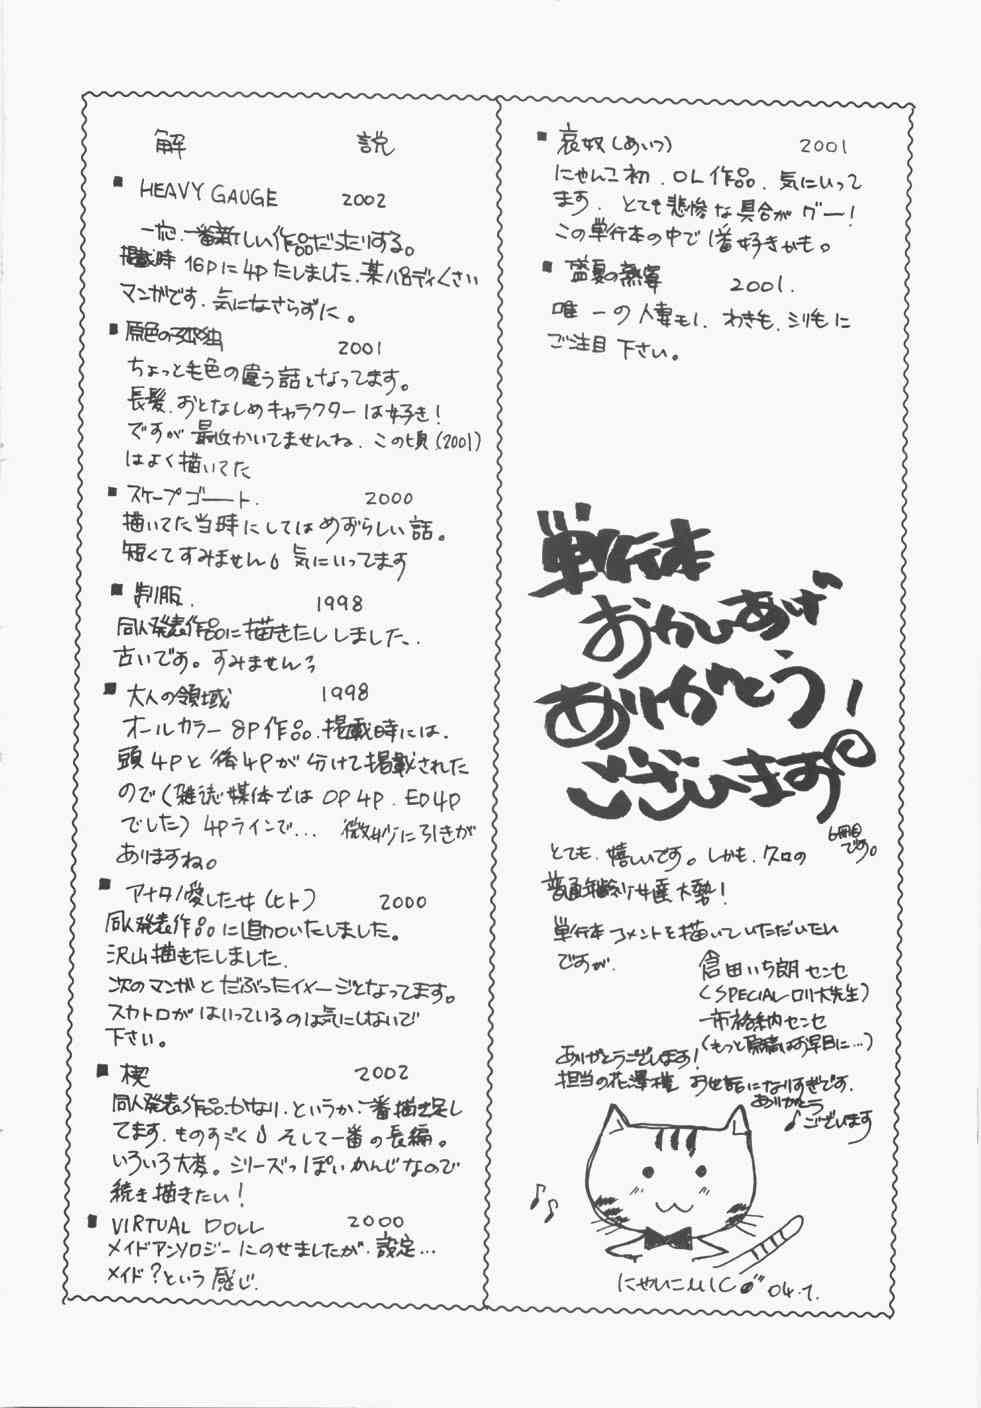 解説
■ HEAVY GAUGE 2002
一応、一番新しい作品だったりする。
掲載時16Pに4Pたしました、某パロディくさい
マンガです、気になさらずに。
■ 原色の孤独 2001
ちょっと毛色の違う話となってます。
長髪、おとなしめキャラクターは好き!
ですが最近かいてませんね、この頃(2001)
はよく描いてた
■ スケープゴート. 2000
描いてた当時にしてはめずらしい話。
短くてすみません 気にいってます
■ 制服. 1998
同人発表作品に描きたししました、
古いです。すみません
■ 大人の領域 1998
オールカラー8P作品、掲載時には、
頭4Pと後4Pが分けて掲載された
ので(雑誌媒体ではOP4P、ED4P
でした)4Pラインで… 微妙に引きが
ありますね。
■ アナタノ愛した女(ヒト) 2000
同人発表作品に追加いたしました。
沢山描きたしました、
次のマンガとだぶったイメージとなってます。
スカトロがはいっているのは気にしないで
下さい。
■ 楔 2002
同人発表作品、かなり、というか、一番描き足し
てます、ものすごく そして一番の長編。
いろいろ大変。シリーズっぽいかんじなので
続き描きたい!
■ VIRTUAL DOLL 2000
メイドアンソロジーにのせましたが、設定…
メイド?という感じ.
■ 哀奴(あいつ) 2001
にゃんこ初、OL作品、気にいって
ます、とても悲惨な具合がグー!
この単行本の中で1番好きかも。
■ 盛夏の熱宴 2001.
唯一の人妻もし、わき毛、シリ毛に
ご注目下さい。
単行本
おかいあげ
ありがとう!
ございます
6冊目です。
とても、嬉しいです。しかも、クロの
普通年齢りは大勢!
単行本コメントを描いていただいたい
ですが、
倉田いち朗センセ
(SPECIALロリ大先生)
市裕納センセ
(もっと原稿はお早目に…)
ありがとうございます!
担当の花澤様 お世話になりすぎです、
ありがとう
♪ございます
にゃんこMIC 04.7.